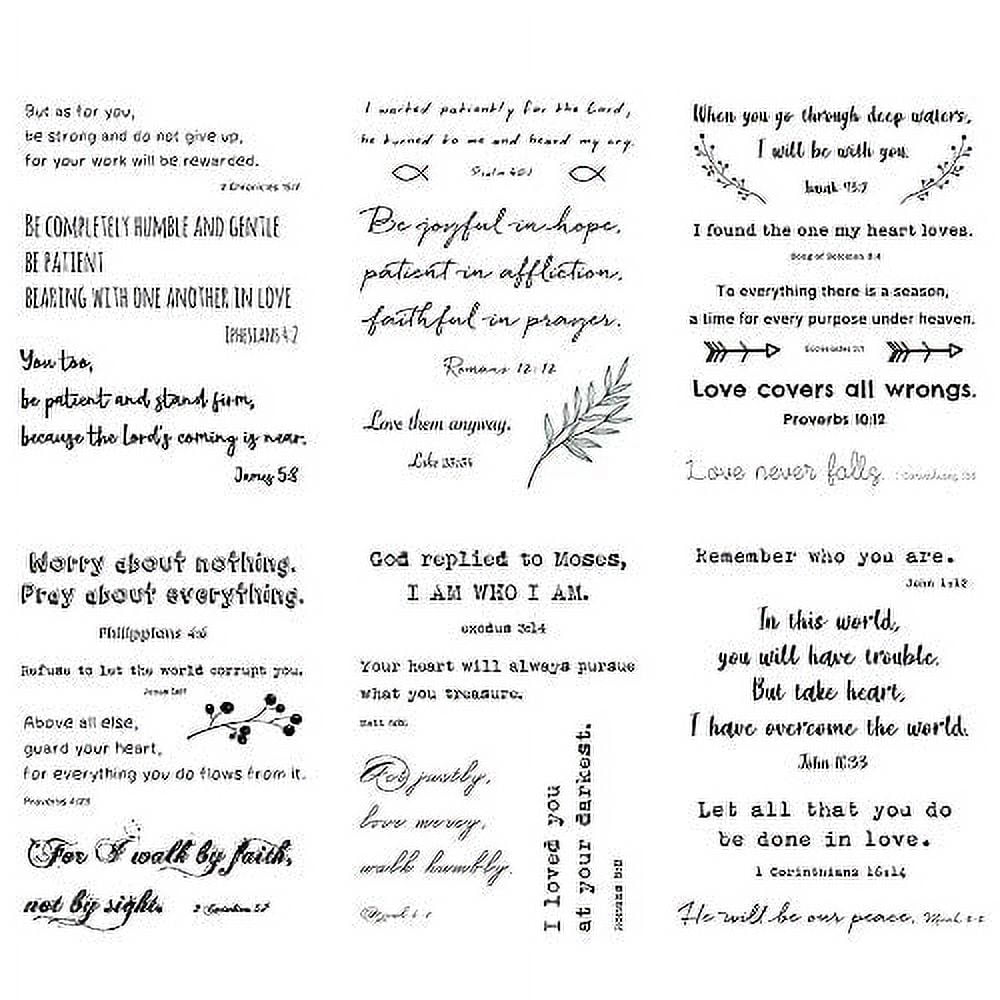 But as for you,
be strong and do not give up,
for your work will be rewarded.
2 Chronicles 15:7
BE COMPLETELY HUMBLE AND GENTLE
BE PATIENT
BEARING WITH ONE ANOTHER IN LOVE
EPHESIANS 4:2
You too,
be patient and stand firm,
because the Lord's coming is near.
James 5:8
I waited patiently for the Lord,
he turned to me and heard my cry.
Psalm 40:1
Be joyful in hope,
patient in affliction,
faithful in prayer.
Romans 12:12
Love them anyway.
Luke
When you go through deep waters,
I will be with you.
Isaiah 43:2
I found the one my heart loves.
Song of Solomon 3:4
To everything there is a season,
a time for every purpose under heaven.
Ecclesiastes 3:1
Love covers all wrongs.
Proverbs 10:12
Love never fails.
Worry about nothing.
Pray about everything.
Philippians 4:6
Refuse to let the world corrupt you.
James 1:27
Above all else,
guard your heart,
for everything you do flows from it.
Proverbs 4:23
For I walk by faith,
not by sight.
2 Corinthians 5:7
God replied to Moses,
I AM WHO I AM.
exodus 3:14
Your heart will always pursue
what you treasure.
Matt
Act justly,
love mercy,
walk humbly.
I loved you
at your darkest.
Romans 5:8
Remember who you are.
John 1:12
In this world,
you will have trouble.
But take heart,
I have overcome the world.
John 16:33
Let all that you do
be done in love.
1 Corinthians 16:14
He will be our peace. Micah 5:5